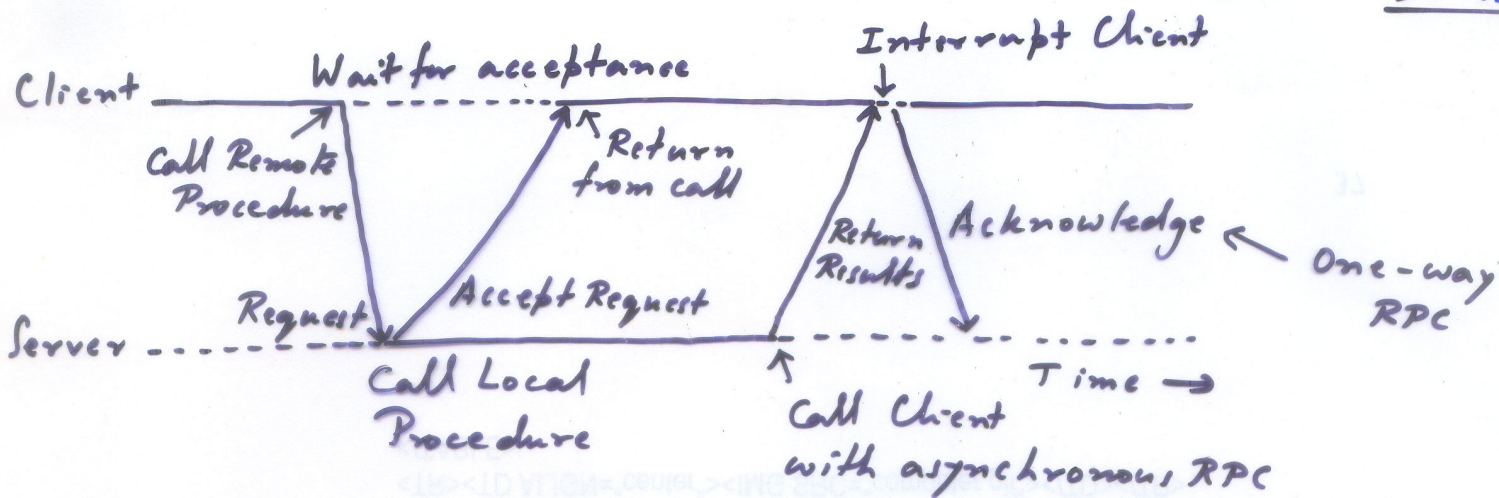 Interrupt Client
Wait for acceptance
Client
Call Remote
Procedure
Return
from call
Return
Results
Acknowledge
One-way
RPC
Request
Accept Request
Server
Call Local
Procedure
Time →
Call Client
with asynchronous RPC